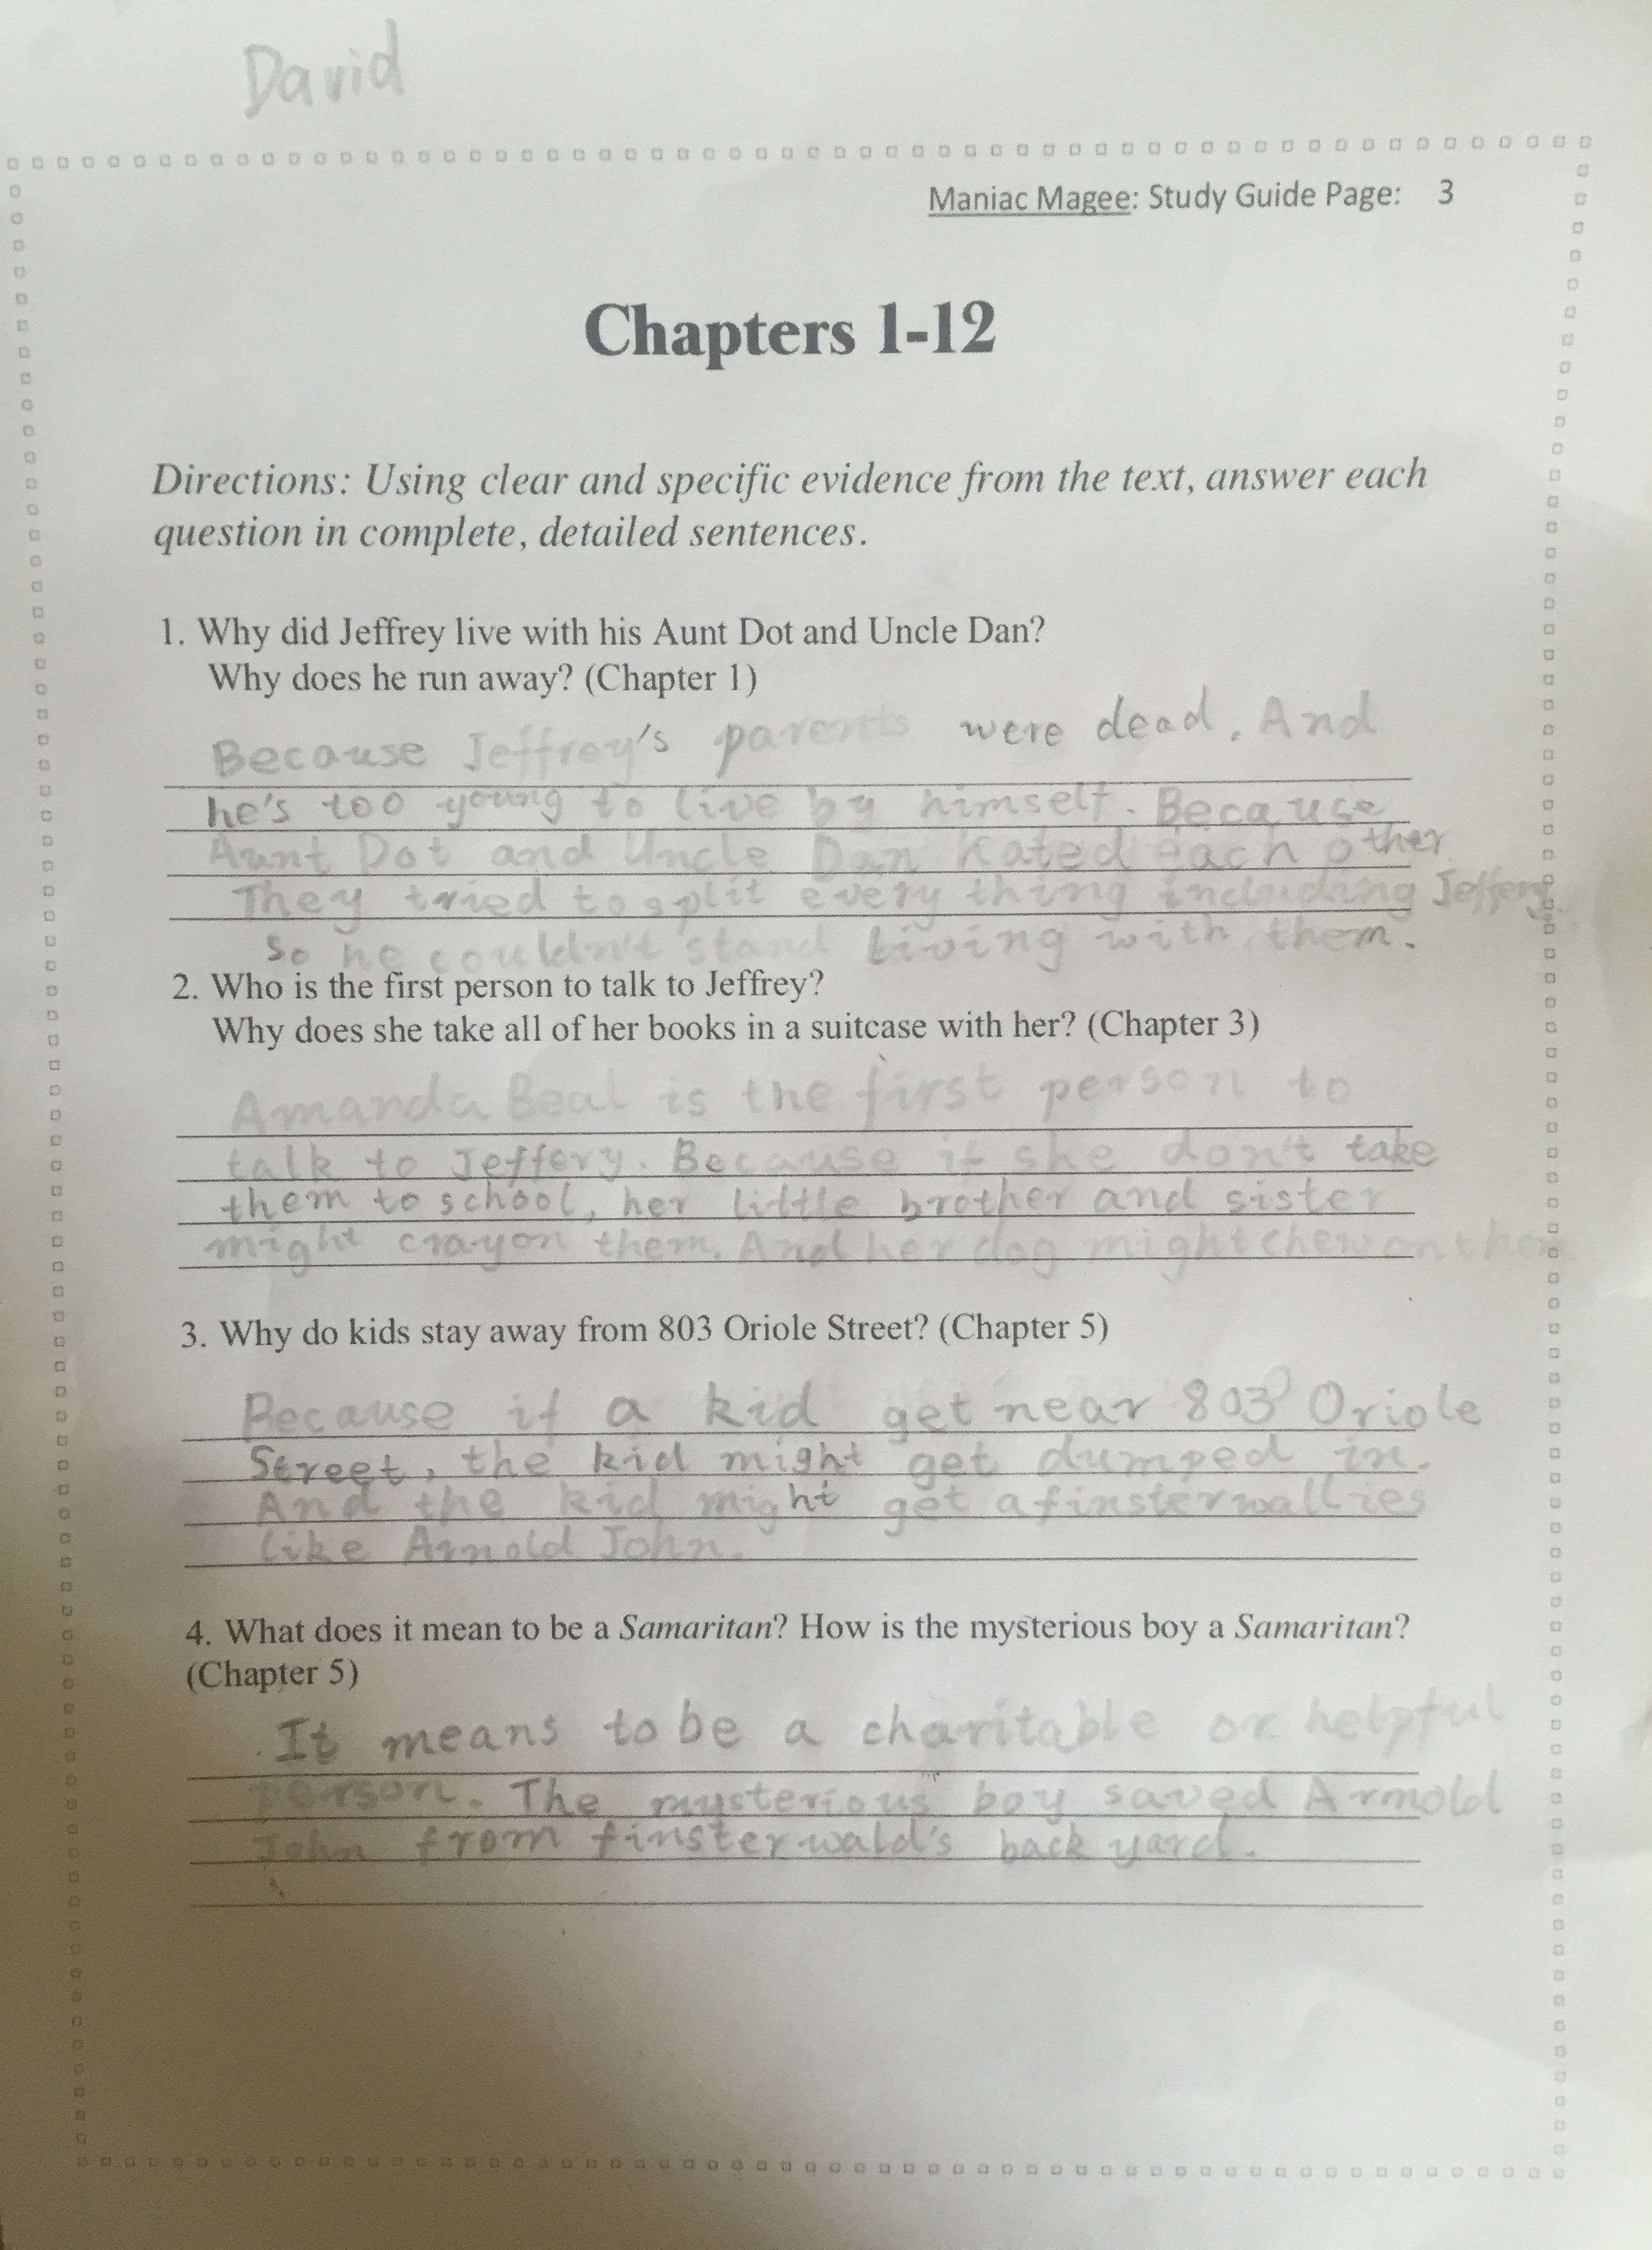 David
Maniac Magee: Study Guide Page: 3
Chapters 1-12
Directions: Using clear and specific evidence from the text, answer each
question in complete, detailed sentences.
1. Why did Jeffrey live with his Aunt Dot and Uncle Dan?
Why does he run away? (Chapter 1)
Because Jeffrey's parents were dead. And
he's too young to live by himself. Because
Aunt Dot and Uncle Dan hated each other
They tried to split every thing including Jeffery
So he couldn't stand living with them.
2. Who is the first person to talk to Jeffrey?
Why does she take all of her books in a suitcase with her? (Chapter 3)
Amanda Beal is the first person to
talk to Jeffery. Because if she don't take
them to school, her little brother and sister
might crayon them. And her dog might chew on them
3. Why do kids stay away from 803 Oriole Street? (Chapter 5)
Because if a kid get near 803 Oriole
Street, the kid might get dumped in.
And the kid might get a finsterwallies
like Arnold John.
4. What does it mean to be a Samaritan? How is the mysterious boy a Samaritan?
(Chapter 5)
It means to be a charitable or helpful
person. The mysterious boy saved Arnold
John from finsterwald's back yard.